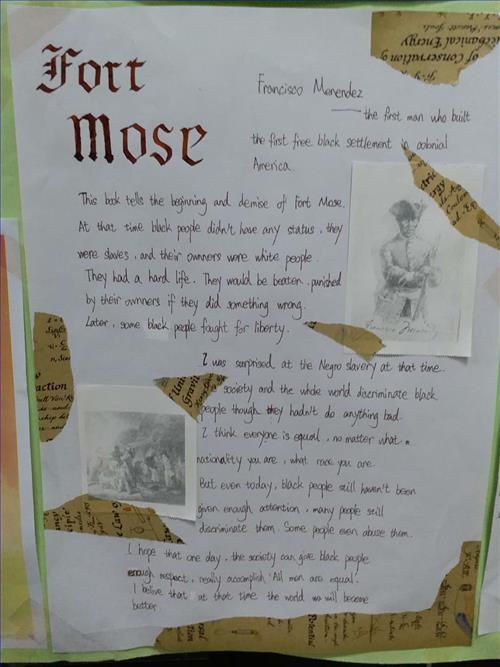 Fort
Mose
Francisco Menendez
— the first man who built
the first free black settlement in colonial
America.
This book tells the beginning and demise of Fort Mose.
At that time black people didn't have any status, they
were slaves, and their owners were white people.
They had a hard life. They would be beaten, punished
by their owners if they did something wrong.
Later, some black people fought for liberty.
I was surprised at the Negro slavery at that time.
society and the whole world discriminate black
people though they hadn't do anything bad.
I think everyone is equal, no matter what
nationality you are, what race you are.
But even today, black people still haven't been
given enough attention, many people still
discriminate them. Some people even abuse them.
I hope that one day, the society can give black people
enough respect, really accomplish "All men are equal".
I belive that at that time the world will become
better.
of Conservation of
Mechanical Energy
action
Gravit
Law of
Potential